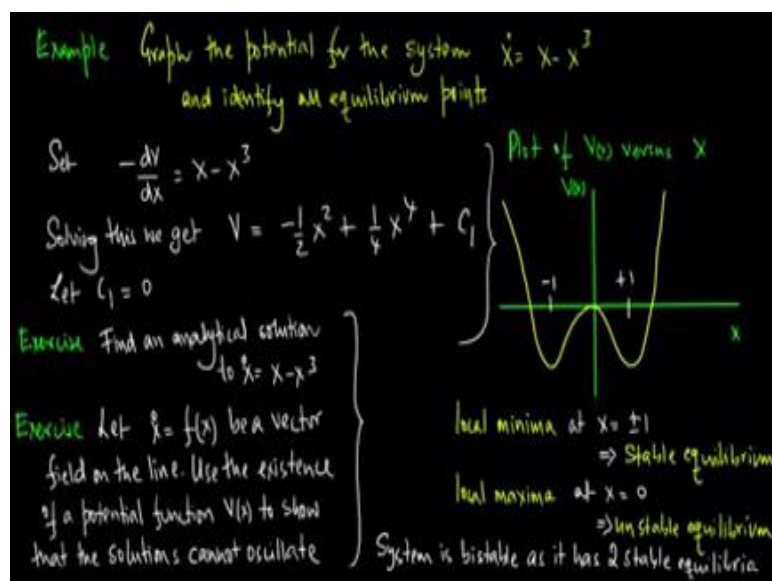 Example Graph the potential for the system ẋ = x - x³
and identify all equilibrium points
Set -dv/dx = x - x³
Solving this we get V = -1/2 x² + 1/4 x⁴ + C₁
Let C₁ = 0
Exercise Find an analytical solution
to ẋ = x - x³
Exercise Let ẋ = f(x) be a vector
field on the line. Use the existence
of a potential function V(x) to show
that the solutions cannot oscillate
Plot of V(x) versus x
V(x)
-1 +1
x
local minima at x = ±1
⇒ Stable equilibrium
local maxima at x = 0
⇒ unstable equilibrium
System is bistable as it has 2 stable equilibria